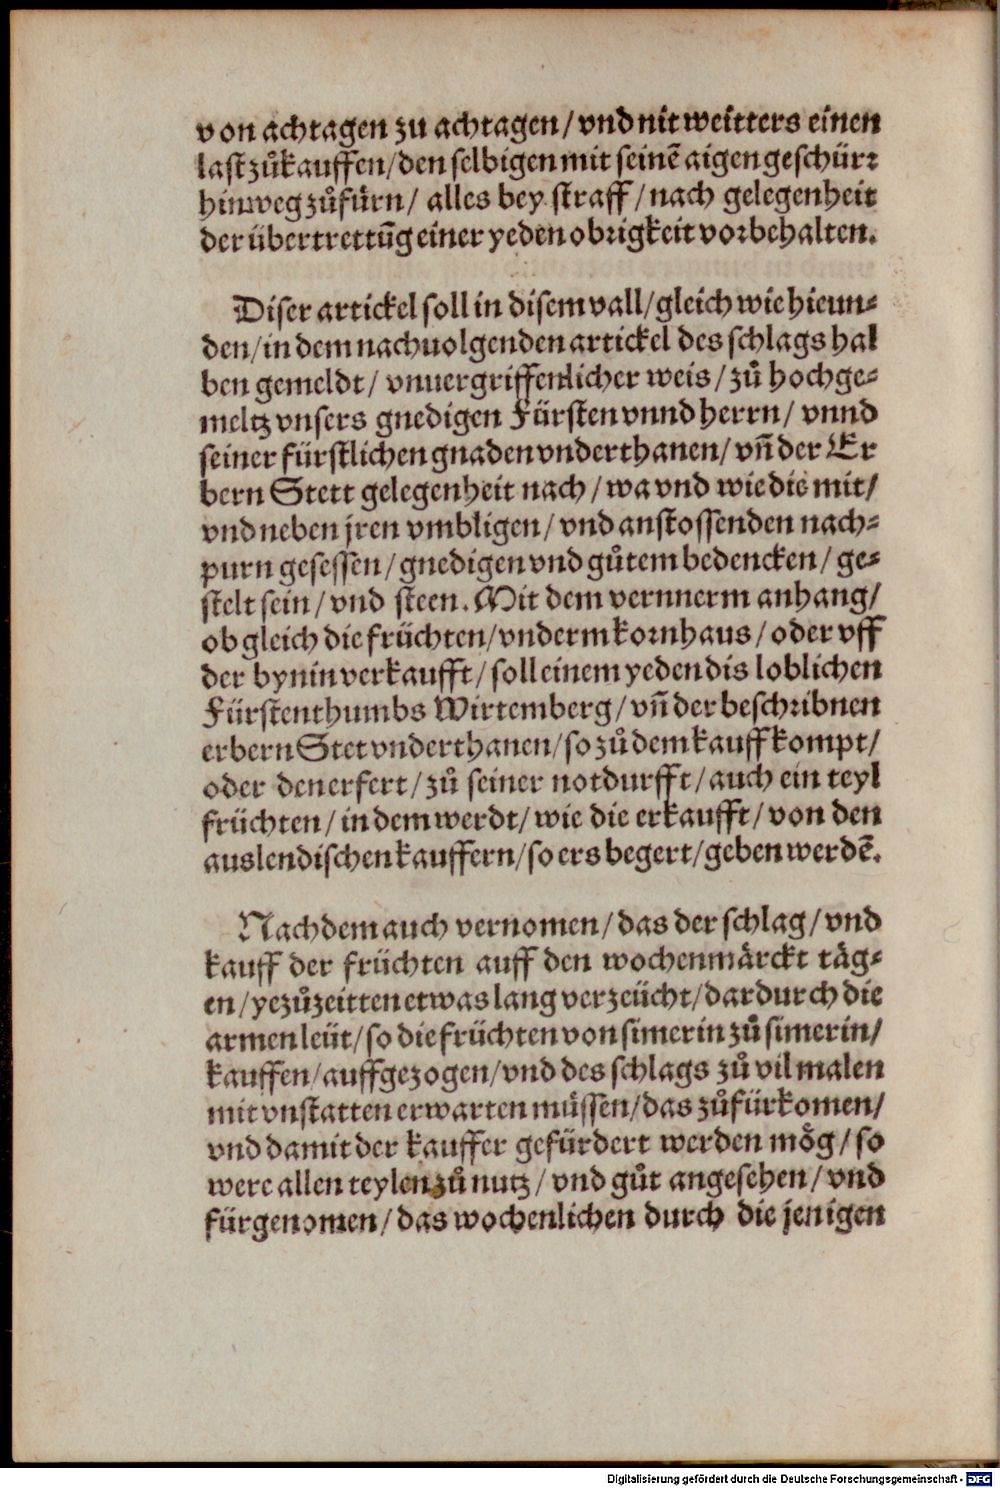 von achtagen zu achtagen / vnd nit weitters einen
last zůkauffen / den selbigen mit seinē aigen geschürr
hinweg zůfürn / alles bey straff / nach gelegenheit
der übertrettūg einer yeden obrigkeit vorbehalten.
Diser artickel soll in disem vall / gleich wie hieun⸗
den / in dem nachuolgenden artickel des schlags hal
ben gemeldt / vnuergriffenlicher weis / zů hochge⸗
meltz vnsers gnedigen Fürsten vnnd herrn / vnnd
seiner fürstlichen gnaden vnderthanen / vn̄ der Er
bern Stett gelegenheit nach / wa vnd wie die mit /
vnd neben jren vmbligen / vnd anstossenden nach⸗
purn gesessen / gnedigen vnd gůtem bedencken / ge⸗
stelt sein / vnd steen. Mit dem vernnerm anhang /
ob gleich die früchten / vnderm kornhaus / oder vff
der bynin verkaufft / soll einem yeden dis loblichen
Fürstenthumbs Wirtemberg / vn̄ der beschribnen
erbern Stet vnderthanen / so zů dem kauff kompt /
oder den erfert / zů seiner notdurfft / auch ein teyl
früchten / in dem werdt / wie die erkaufft / von den
auslendischen kauffern / so ers begert / geben werdē.
Nachdem auch vernomen / das der schlag / vnd
kauff der früchten auff den wochenmärckt täg⸗
en / yezůzeitten etwas lang verzeücht / dardurch die
armen leüt / so die früchten von simerin zů simerin /
kauffen / auffgezogen / vnd des schlags zů vil malen
mit vnstatten erwarten müssen / das zůfürkomen /
vnd damit der kauffer gefürdert werden mög / so
were allen teylen zů nutz / vnd gůt angesehen / vnd
fürgenomen / das wochenlichen durch die jenigen
Digitalisierung gefördert durch die Deutsche Forschungsgemeinschaft - DFG